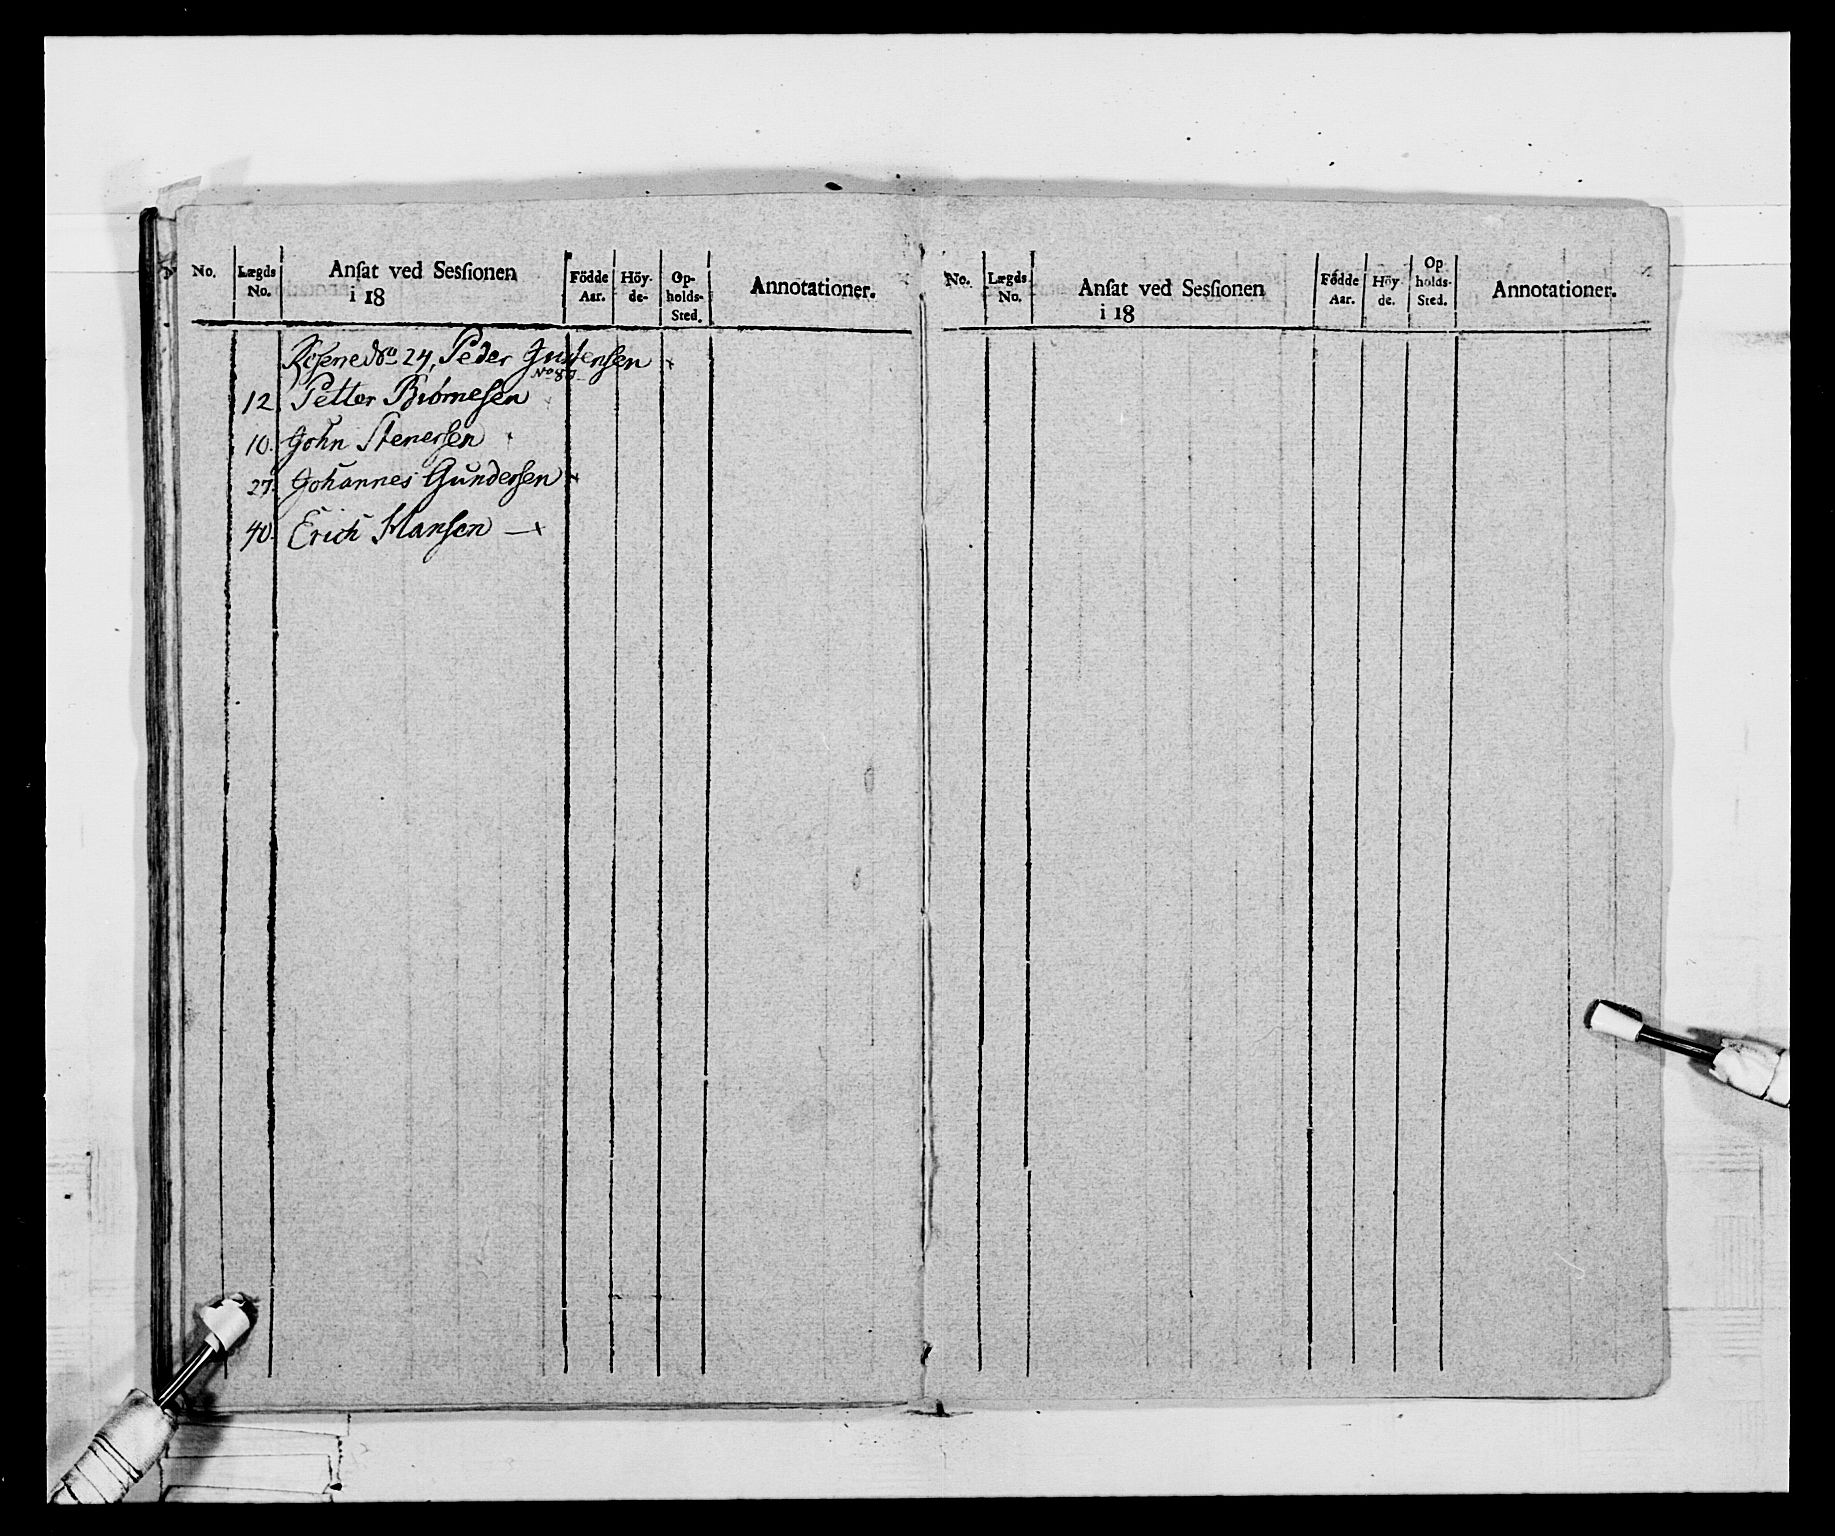 No. Lægds No. Anſat ved Sesſionen i 18 Födde Aar. Höy- de- Op- holds- Sted. Annotationer.
No. 24, Peder
No 80
12. Petter Biörnesen
10. John Stenersen
27. Johannes Gundersen
40. Erich Hansen
No. Lægds No. Anſat ved Sesſionen i 18 Födde Aar. Höy- de. Op holds- Sted. Annotationer.